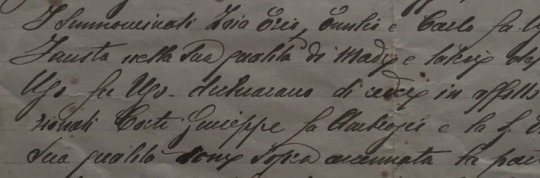 I Summovinati Isia Erio, Emilio e Carlo fu U
Fausta nella sua qualità di Madre e tutrice
Ugo fu Ugo - dichiarano di cedere in affitto
Conti Giuseppe fu Ambrogio e la S.
sua qualità come sopra accennata la